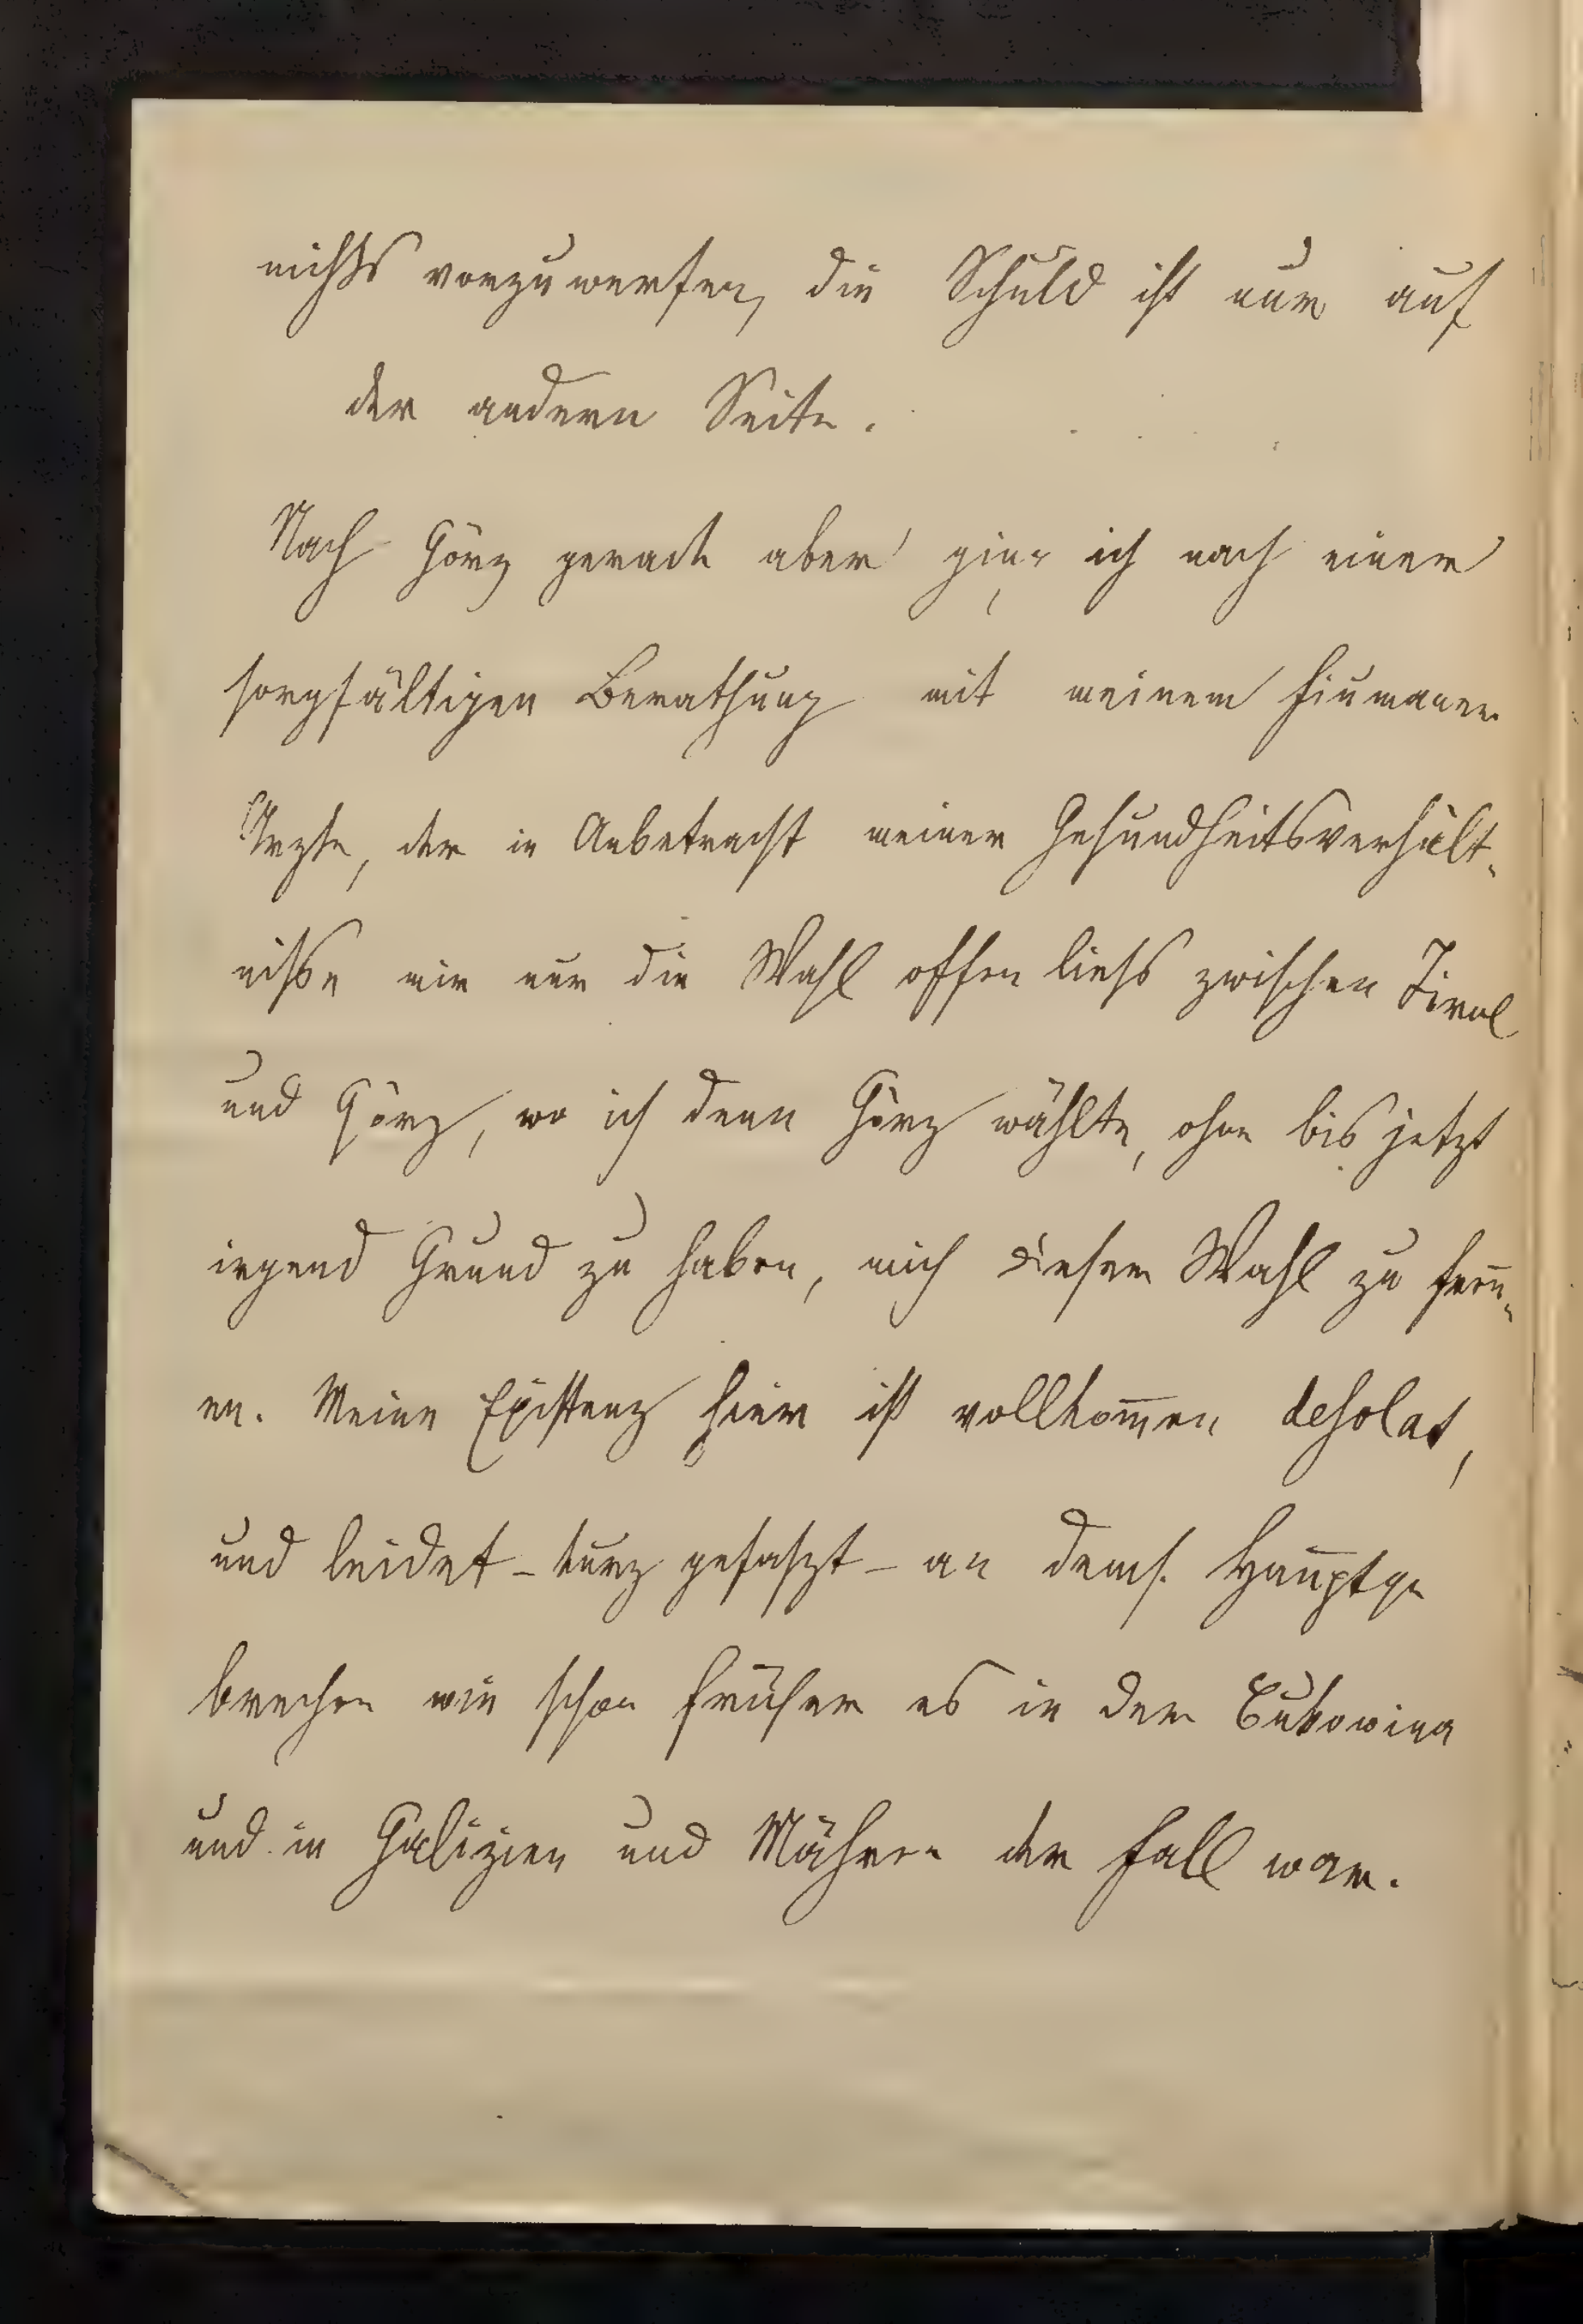 nichts vorzuwerfen, die Schuld ist nur auf
der andern Seite.
Nach Görz gerade aber ging ich nach einer
sorgfältigen Berathung mit meinem Fiumaner
Arzte, der in Anbetracht meiner Gesundheitsverhält-
nisse mir nur die Wahl offen liess zwischen Tirol
und Görz, wo ich denn Görz wählte, ohne bis jetzt
irgend Grund zu haben, mich dieser Wahl zu
en. Meine Existenz hier ist vollkom̅en desolat,
und leidet - kurz gefaszt - an dems. Hauptge
brechen wie schon früher es in der Bukowina
und in Galizien und Mähren der Fall war.